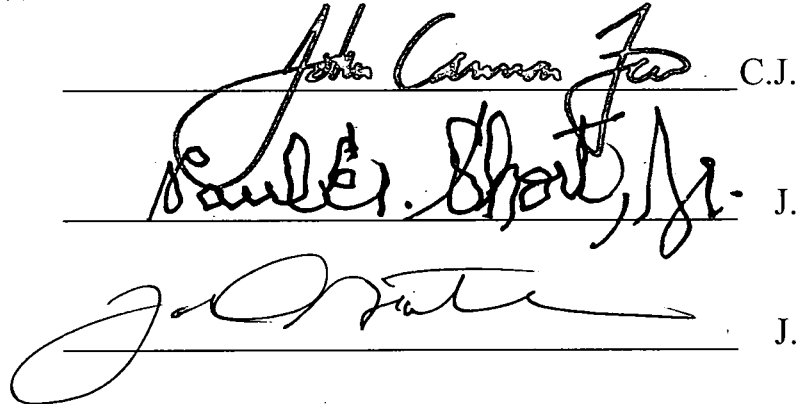 John Cannon Few C.J.
Paul E. Short, Jr. J.
J.